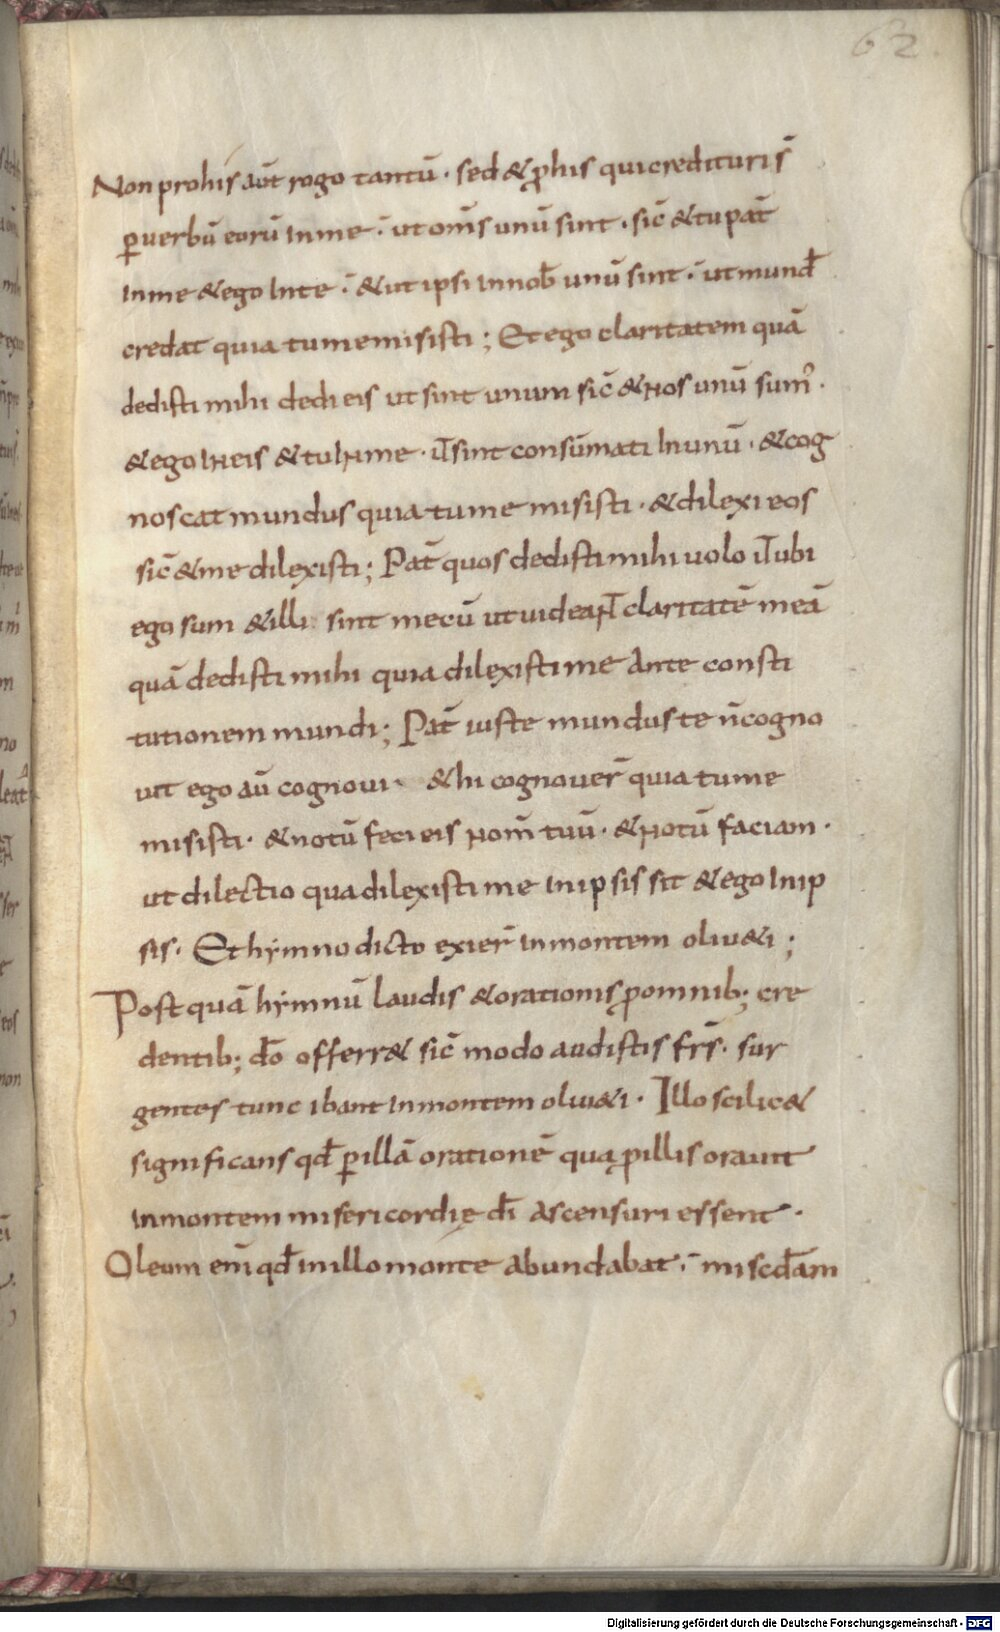 62
Non pro his aūt rogo tantū · sed & ꝓ his qui credituri s̄
ꝑ uerbū eorū in me · ut om̄s unū sint · sic̄ & tu pat̄
in me & ego in te · & ut ipsi in nob̄ unū sint · ut mund̄
credat quia tu me misisti ; Et ego claritatem quā
dedisti mihi dedi eis ut sint unum sic̄ & nos unū sum᾽ ·
& ego in eis & tu in me · ut sint consūmati in unū · & cog
noscat mundus quia tu me misisti · & dilexi eos
sic̄ & me dilexisti ; Pat̄ quos dedisti mihi uolo ut ubi
ego sum & illi sint mecū ut uideant claritatē meā
quā dedisti mihi quia dilexisti me ante consti
tutionem mundi ; Pat̄ iuste mundus te n̄ cogno
uit ego aū cognoui · & hi cognouer̄ quia tu me
misisti · & notū feci eis nom̄ tuū · & notū faciam ·
ut dilectio qua dilexisti me in ipsis sit & ego in ip
sis · Et hẏmno dicto exier̄ in montem oliu&i ;
Postquā hẏmnū laudis & orationis ꝓ omnib; cre
dentib; do̅ offerr& sic̄ modo audistis frs̄ · sur
gentes tunc ibant in montem oliu&i · Illo scilic&
significans qd̄ ꝑ illā orationē qua ꝓ illis orauit
in montem misericordię di̅ ascensuri essent ·
Oleum eni̅ qd̄ in illo monte abundabat · miscd̄am
Digitalisierung gefördert durch die Deutsche Forschungsgemeinschaft - DFG